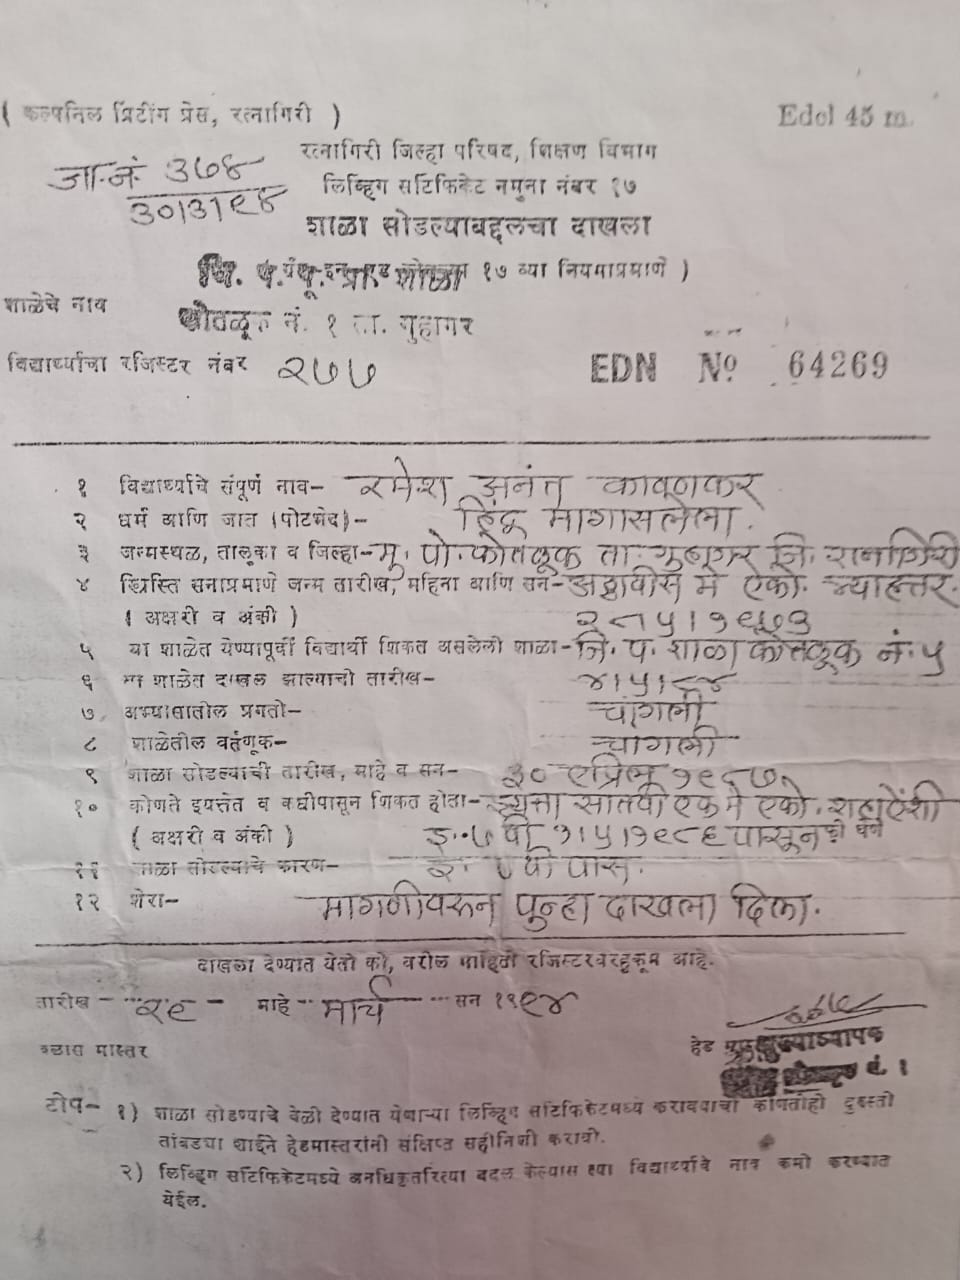 ( कल्पनिल प्रिंटींग प्रेस, रत्नागिरी ) Edol 45 m.
रत्नागिरी जिल्हा परिषद, शिक्षण विभाग
जा.नं. ३७४ लिव्हिंग सर्टिफिकेट नमुना नंबर १७
३०।३।९४ शाळा सोडल्याबद्दलचा दाखला
१७ व्या नियमाप्रमाणे )
शाळेचे नाव
कोतळूक नं. १ ता. गुहागर
विद्यार्थ्याचा रजिस्टर नंबर २७७ EDN Nº 64269
१ विद्यार्थ्याचे संपूर्ण नाव- रमेश अनंत कावणकर
२ धर्म आणि जात (पोटभेद)- हिंदू मागासलेला.
३ जन्मस्थळ, तालूका व जिल्हा- मु. पो. कोतळूक ता. गुहागर जि. रत्नागिरी
४ ख्रिस्ति सनाप्रमाणे जन्म तारीख, महिना आणि सन- अठ्ठावीस मे एको. त्र्याहत्तर.
( अक्षरी व अंकी ) २८।५।१९७३
५ या शाळेत येण्यापूर्वी विद्यार्थी शिकत असलेली शाळा- जि. प. शाळा कोतळूक नं. ५
६ या शाळेत दाखल झाल्याची तारीख- ४।५।८४
७ अभ्यासातील प्रगती- चांगली
८ शाळेतील वर्तणूक- चांगली
९ शाळा सोडल्याची तारीख, माहे व सन- ३० एप्रिल १९८७.
१० कोणते इयत्तेत व कधीपासून शिकत होता- इयत्ता सातवी एक मे एको. शहाऐंशी
( अक्षरी व अंकी ) इ. ७ वी १।५।१९८६ पासून
११ शाळा सोडल्याचे कारण- इ. ७ वी पास.
१२ शेरा- मागणीवरून पुन्हा दाखला दिला.
दाखला देण्यात येतो की, वरील माहिती रजिस्टरबरहुकूम आहे.
तारीख - २९ - माहे मार्च सन १९९४
क्लास मास्तर हेड मुख्याध्यापक
नं. १
टीप- १) शाळा सोडण्याचे वेळी देण्यात येणाऱ्या लिव्हिंग सर्टिफिकेटमध्ये करावयाची कोणतीही दुरुस्ती
तांबड्या शाईने हेडमास्तरांनी संक्षिप्त सहीनिशी करावी.
२) लिव्हिंग सर्टिफिकेटमध्ये अनधिकृतरित्या बदल केल्यास त्या विद्यार्थ्याचे नाव कमी करण्यात
येईल.